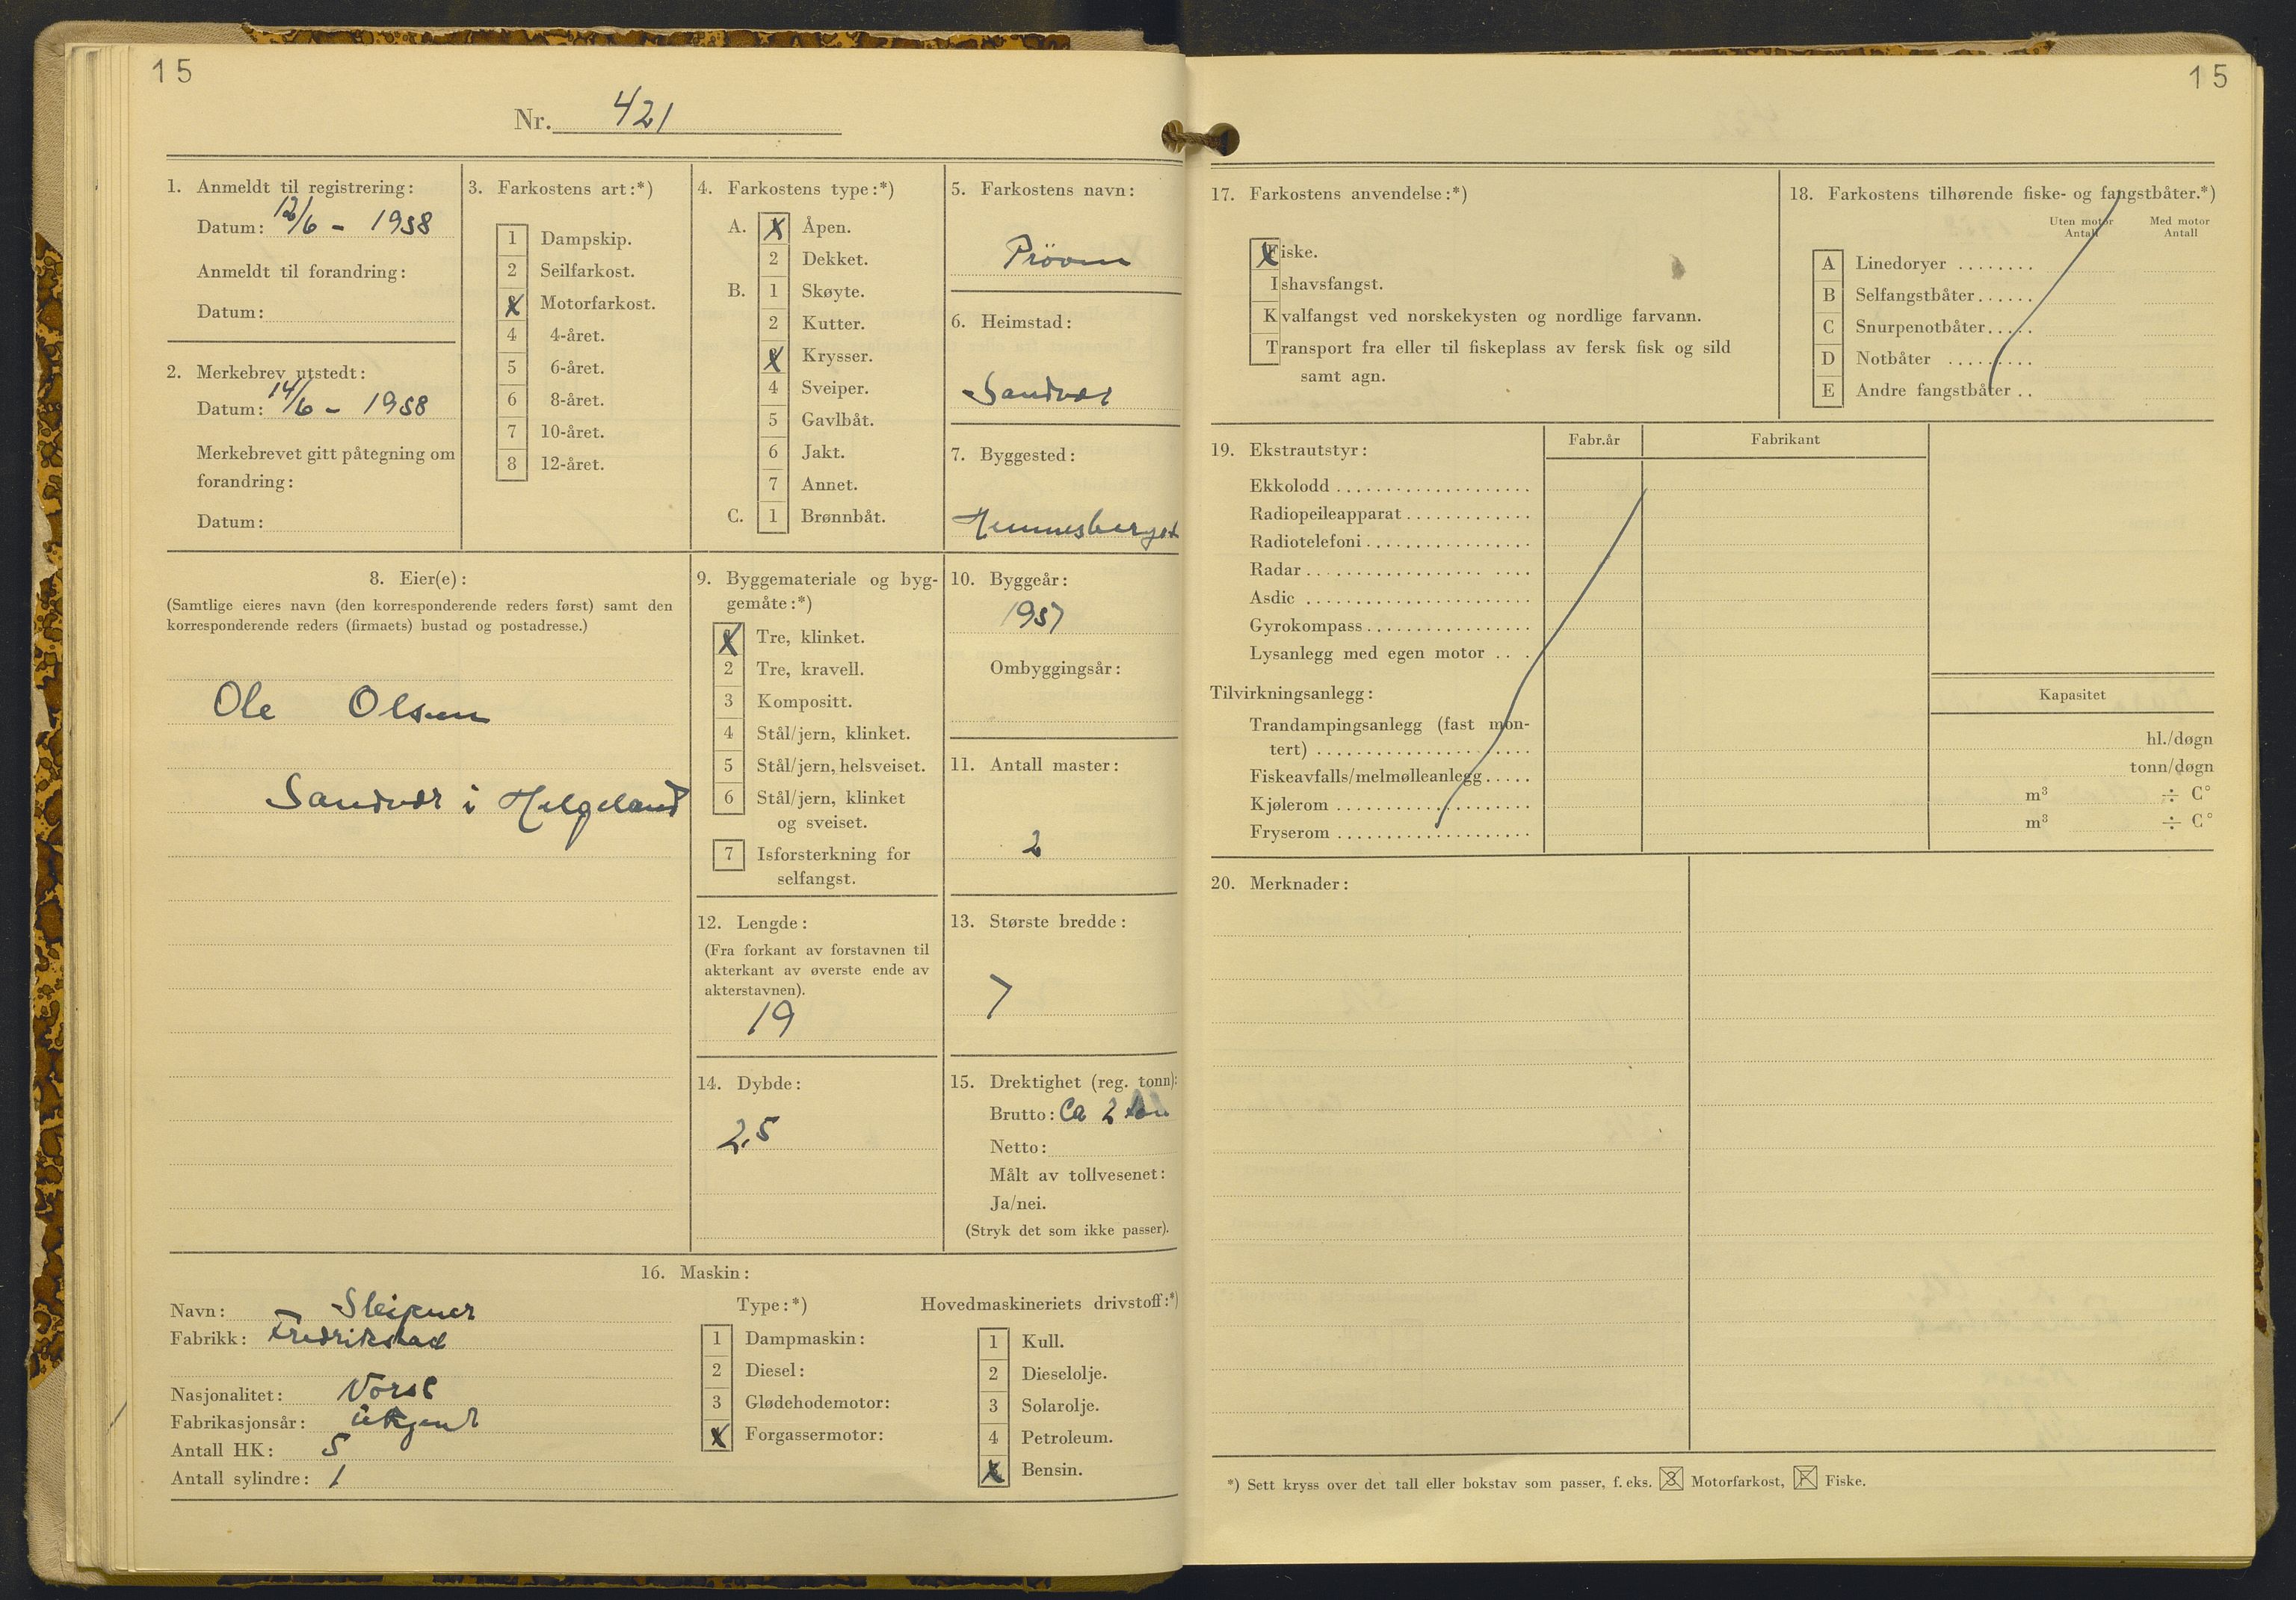 15
Nr. 421
1. Anmeldt til registrering:
Datum: 12/6 - 1958
Anmeldt til forandring:
Datum:
2. Merkebrev utstedt:
Datum: 14/6 - 1958
Merkebrevet gitt påtegning om
forandring:
Datum:
3. Farkostens art:*)
1 Dampskip.
2 Seilfarkost.
X Motorfarkost.
4 4-året.
5 6-året.
6 8-året.
7 10-året.
8 12-året.
4. Farkostens type:*)
A. X Åpen.
2 Dekket.
B. 1 Skøyte.
2 Kutter.
X Krysser.
4 Sveiper.
5 Gavlbåt.
6 Jakt.
7 Annet.
C. 1 Brønnbåt.
5. Farkostens navn:
6. Heimstad:
Sandvær
7. Byggested:
8. Eier(e):
(Samtlige eieres navn (den korresponderende reders først) samt den
korresponderende reders (firmaets) bustad og postadresse.)
Ole Olsen
Sandvær i Helgeland
9. Byggemateriale og byg-
gemåte:*)
X Tre, klinket.
2 Tre, kravell.
3 Kompositt.
4 Stål/jern, klinket.
5 Stål/jern, helsveiset.
6 Stål/jern, klinket
og sveiset.
7 Isforsterkning for
selfangst.
10. Byggeår:
1957
Ombyggingsår:
11. Antall master:
2
12. Lengde:
(Fra forkant av forstavnen til
akterkant av øverste ende av
akterstavnen).
19
13. Største bredde:
7
14. Dybde:
2,5
15. Drektighet (reg. tonn):
Brutto: Ca 2 ton
Netto:
Målt av tollvesenet:
Ja/nei.
(Stryk det som ikke passer).
16. Maskin:
Navn: Sleipner
Fabrikk: Fredrikstad
Nasjonalitet: Norsk
Fabrikasjonsår: ukjent
Antall HK: 5
Antall sylindre: 1
Type:*)
1 Dampmaskin:
2 Diesel:
3 Glødehodemotor:
X Forgassermotor:
Hovedmaskineriets drivstoff:*)
1 Kull.
2 Dieselolje.
3 Solarolje.
4 Petroleum.
X Bensin.
15
17. Farkostens anvendelse:*)
Fiske.
Ishavsfangst.
Kvalfangst ved norskekysten og nordlige farvann.
Transport fra eller til fiskeplass av fersk fisk og sild
samt agn.
18. Farkostens tilhørende fiske- og fangstbåter.*)
Uten motor Med motor
Antall Antall
A Linedoryer ........
B Selfangstbåter......
C Snurpenotbåter.....
D Notbåter .........
E Andre fangstbåter ..
19. Ekstrautstyr:
Fabr.år Fabrikant
Ekkolodd ....................
Radiopeileapparat .............
Radiotelefoni .................
Radar .......................
Asdic .......................
Gyrokompass .................
Lysanlegg med egen motor ...
Tilvirkningsanlegg:
Kapasitet
Trandampingsanlegg (fast mon-
tert) ...................... hl./døgn
Fiskeavfalls/melmølleanlegg ..... tonn/døgn
Kjølerom .................... m³ ÷ C°
Fryserom .................... m³ ÷ C°
20. Merknader:
*) Sett kryss over det tall eller bokstav som passer, f. eks. 3 Motorfarkost, F Fiske.